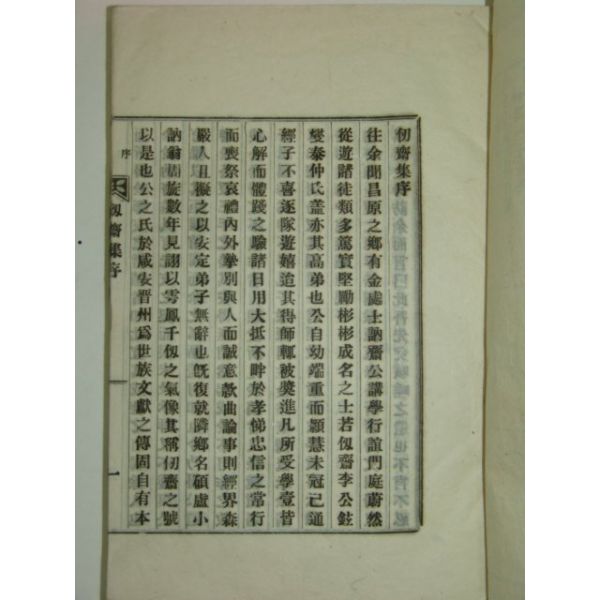 仞齋集序
往余聞昌原之鄕有金處士訥齋公講學行誼門庭蔚然
從遊諸徒類多篤實堅勵彬彬成名之士若仭齋李公鉉
燮泰仲氏盖亦其高弟也公自幼端重而穎慧未冠已通
經子不喜逐隊遊嬉迨其得師輒被奬進凡所受學壹皆
心解而體踐之驗諸日用大抵不畔於孝悌忠信之常行
而喪祭哀禮內外挚別與人而誠意款曲論事則經界森
嚴人且擬之以安定弟子無辭也旣復就隣鄕名碩盧小
訥翁周旋數年見詡以雩鳳千仭之氣像其稱仞齋之號
以是也公之氏於咸安晋州爲世族文獻之傳固自有本
序
仭齋集序
一